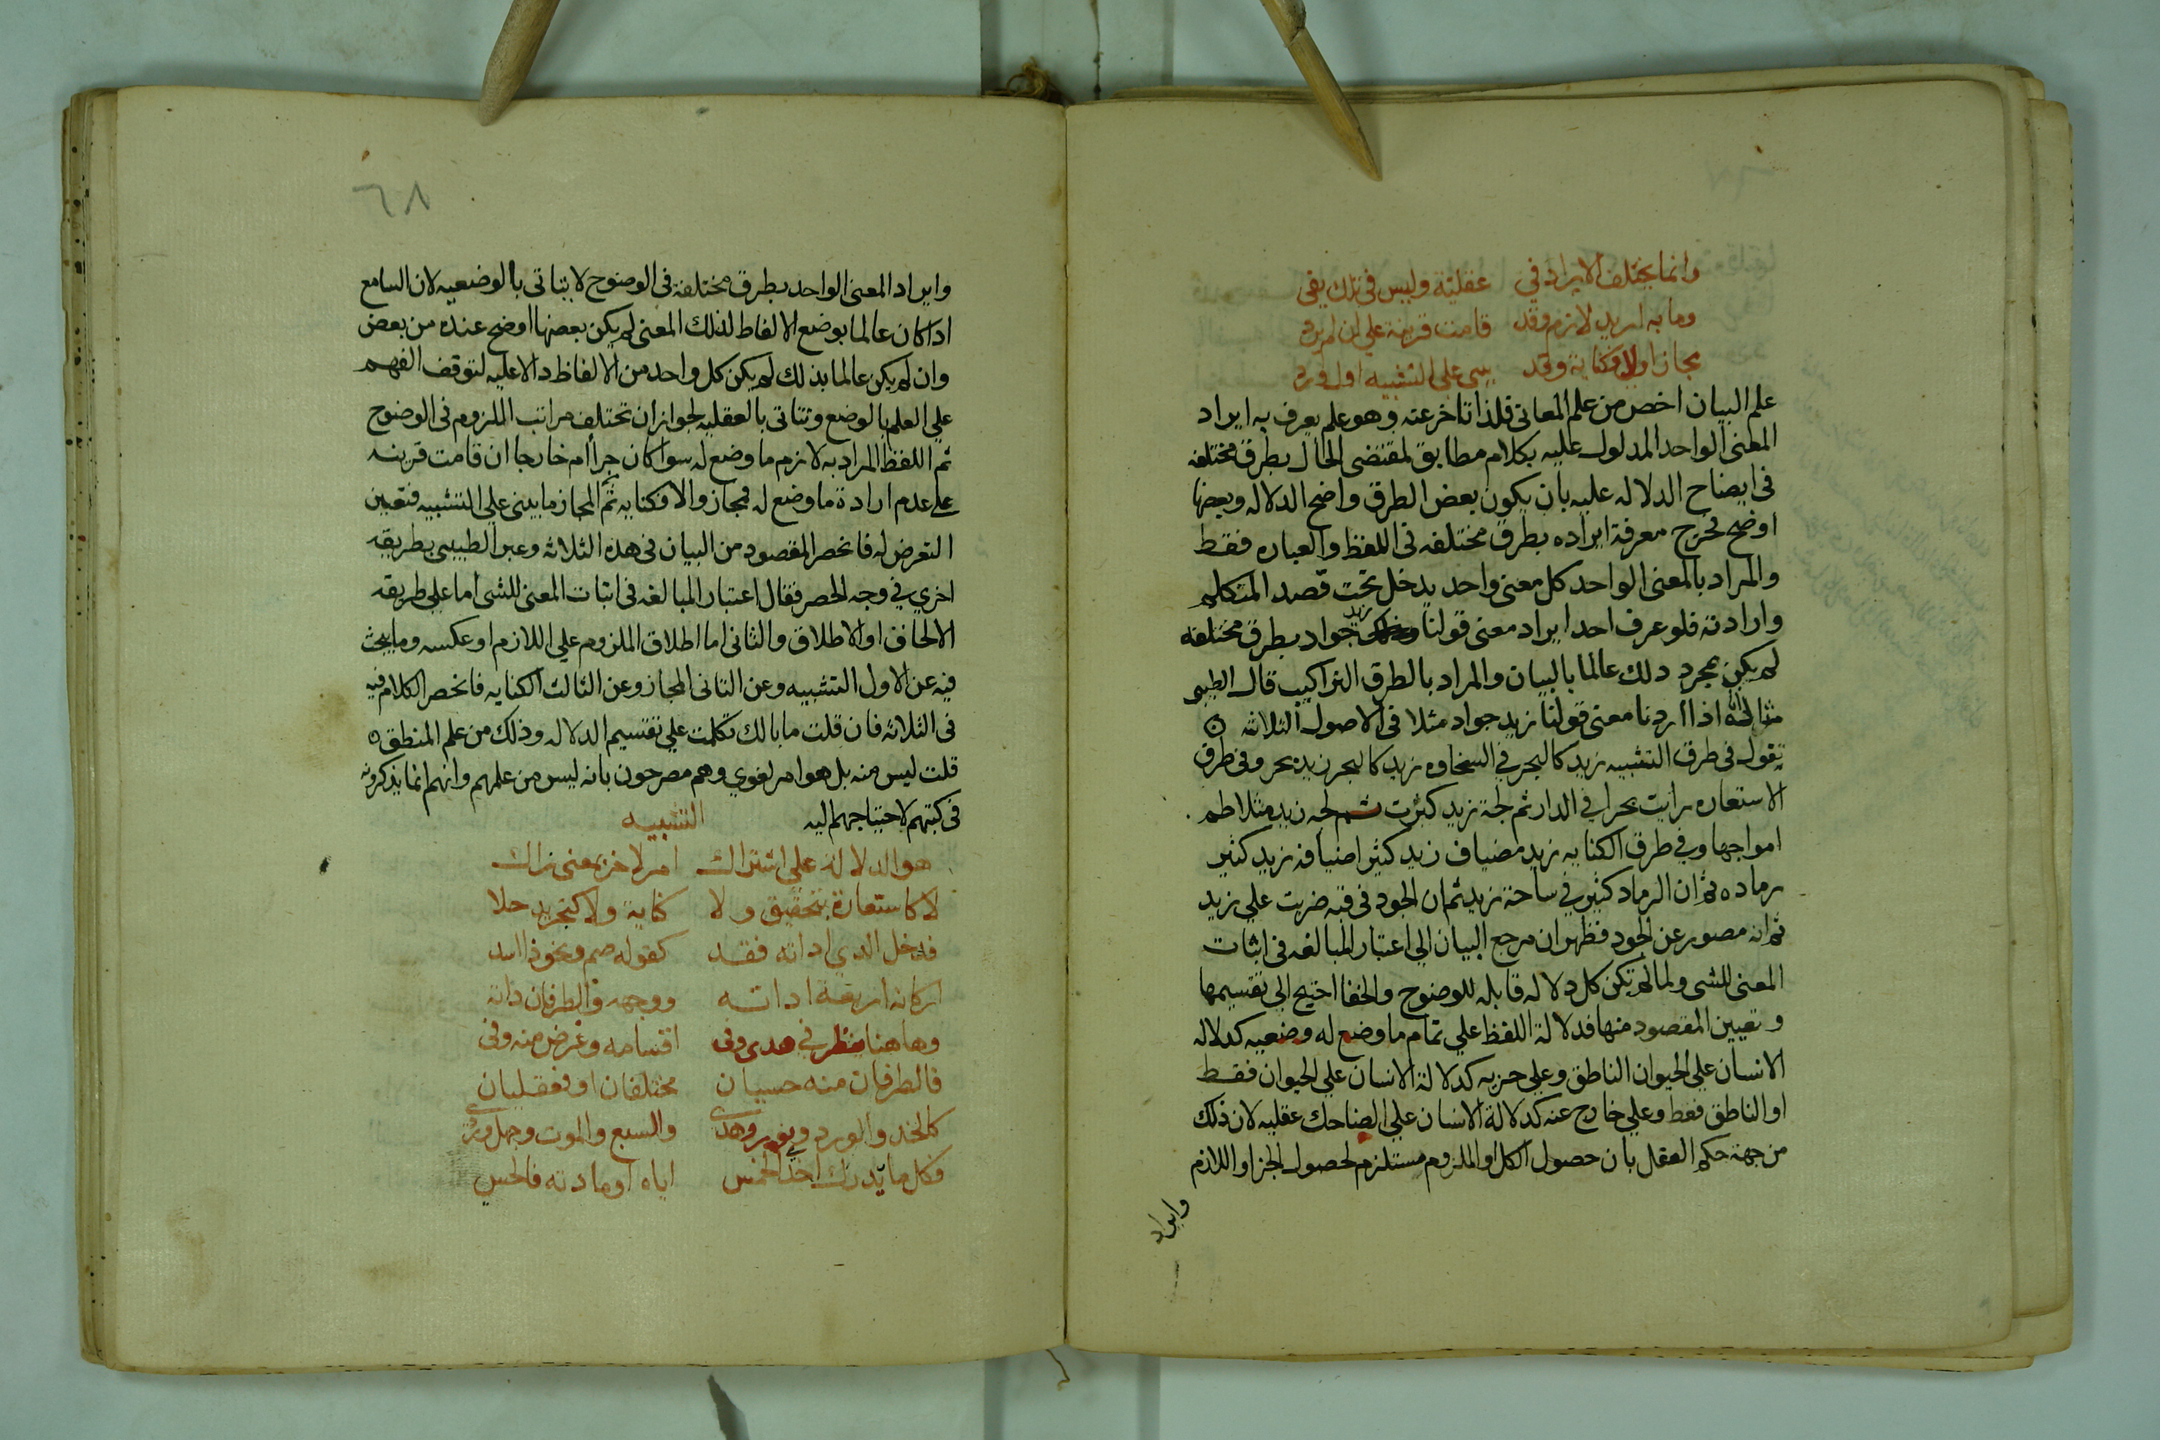 وانما يختلف الايراد في عقلية وليس في تلك يفي
وما به اريد لازم وقد قامت قرينة على ان لم يرد
مجاز اولا فكناية وقد يبنى على التشبيه اول ورد
علم البيان اخص من علم المعاني فلذا تاخر عنه وهو علم يعرف به ايراد
المعنى الواحد المدلول عليه بكلام مطابق لمقتضى الحال بطرق مختلفه
في ايضاح الدلاله عليه بان يكون بعض الطرق واضح الدلاله وبعضها
اوضح فخرج معرفة ايراده بطرق مختلفه في اللفظ والعباره فقط
والمراد بالمعنى الواحد كل معنى واحد يدخل تحت قصد المتكلم
وارادته فلو عرف احد ايراد معنى قولنا زيد جواد بطرق مختلفه
لم يكن بمجرد ذلك عالما بالبيان والمراد بالطرق التراكيب قال الطيبي
مثاله اذا اردنا معنى قولنا زيد جواد مثلا في الاصول الثلاثه
نقول في طرق التشبيه زيد كالبحر في السخاوه زيد كالبحر زيد بحر وفي طرق
الاستعاره رايت بحرا في الدار ثم لجة زيد كثرت ثم لجه زيد متلاطم
امواجها وفي طرق الكنايه زيد مضياف زيد كثير اضيافه زيد كثير
رماده ثم ان الرماد كثير في ساحة زيد ثم ان الجود في قبه ضربت على زيد
ثم انه مصور عن الجود فظهر ان مرجع البيان الى اعتبار المبالغه في اثبات
المعنى للشي ولما لم تكن كل دلاله قابله للوضوح والخفا احتيج الى تقسيمها
وتعيين المقصود منها فدلالة اللفظ على تمام ما وضع له وضعيه كدلاله
الانسان على الحيوان الناطق وعلى جزيه كدلالة الانسان على الحيوان فقط
او الناطق فقط وعلى خارج عنه كدلالة الانسان على الضاحك عقليه لان ذلك
من جهة حكم العقل بان حصول الكل او الملزوم مستلزم لحصول الجز او اللازم
وايراد
٦٨
وايراد المعنى الواحد بطرق مختلفة في الوضوح لا يتاتى بالوضعيه لان السامع
اذا كان عالما بوضع الالفاظ لذلك المعنى لم يكن بعضها اوضح عنده من بعض
وان لم يكن عالما بذلك لم يكن كل واحد من الالفاظ دالا عليه لتوقف الفهم
على العلم بالوضع وتتاتى بالعقليه لجواز ان تختلف مراتب اللزوم في الوضوح
ثم اللفظ المراد به لازم ما وضع له سوا كان جزأ ام خارجا ان قامت قرينه
على عدم ارادة ما وضع له فمجاز والا فكنايه ثم المجاز ما يبنى على التشبيه فتعين
التعرض له فانحصر المقصود من البيان في هذه الثلاثه وعبر الطيبي بطريقه
اخري في وجه الحصر فقال اعتبار المبالغه في اثبات المعنى للشي اما على طريقه
الالحاق او الاطلاق والثاني اما اطلاق الملزوم على اللازم او عكسه وما يبحث
فيه عن الاول التشبيه وعن الثاني المجاز وعن الثالث الكنايه فانحصر الكلام فيه
في الثلاثه فان قلت ما بالك تكلمت على تقسيم الدلاله وذلك من علم المنطق
قلت ليس منه بل هو امر لغوي وهم مصرحون بانه ليس من علمهم وانهم انما يذكرونه
في كتبهم لاحتياجهم اليه التشبيه
هو الدلالة على اشتراك امر لاخر بمعنى زاك
لا كاستعارة بتحقيق ولا كناية ولا كتجريد حلا
فدخل الذي اداته فقد كقوله صم ونحو ذا اسد
اركانه اربعة اداته ووجهه والطرفان ذاته
وهاهنا ينظر في هدى وفى اقسامه وغرض منه وفى
فالطرفان منه حسيان مختلفان او فعقليان
كالخد والورد ونور وهدى والسبع والموت وجهل وردى
فكل ما تدرك احدى الخمس اياه او مادته فالحسي